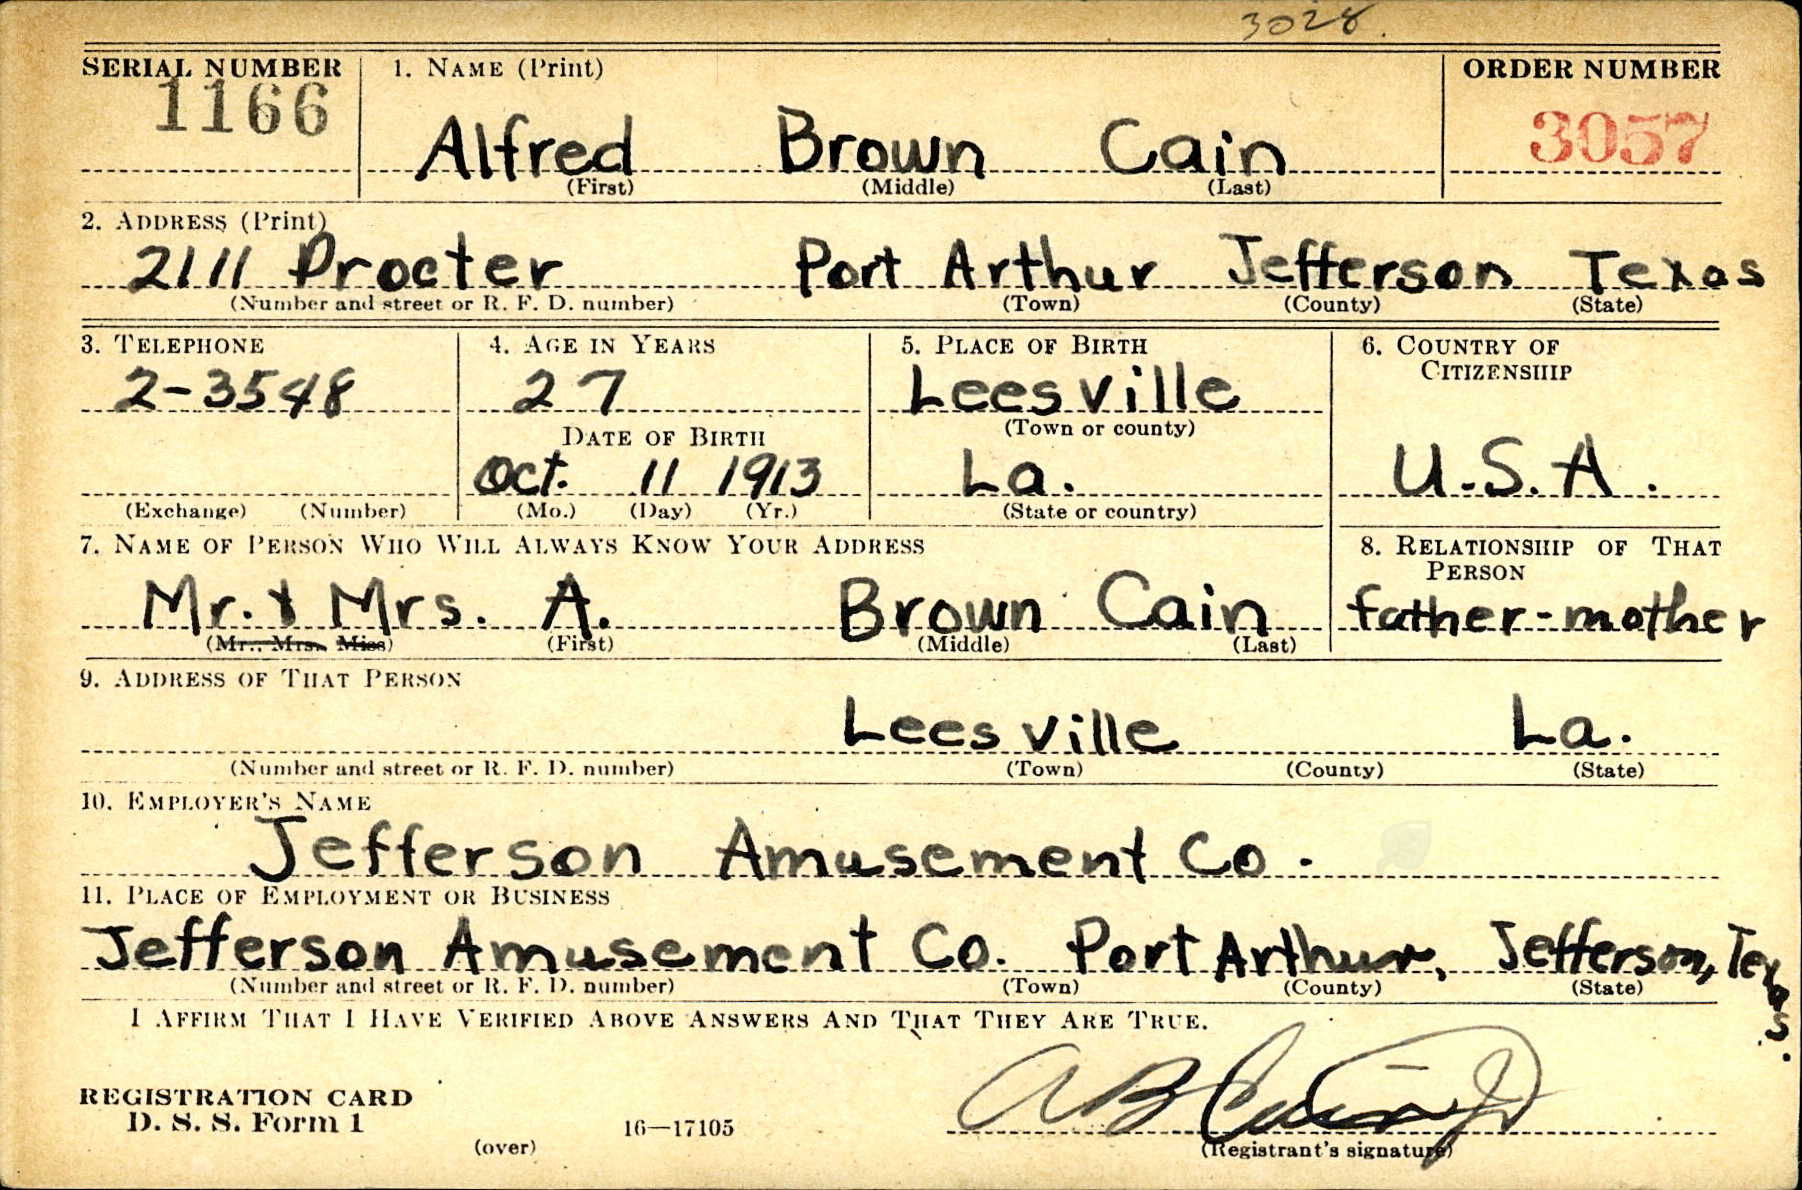 3028.
SERIAL NUMBER 1. NAME (Print) ORDER NUMBER
1166 Alfred Brown Cain 3057
(First) (Middle) (Last)
2. ADDRESS (Print)
2111 Procter Port Arthur Jefferson Texas
(Number and street or R. F. D. number) (Town) (County) (State)
3. TELEPHONE 4. AGE IN YEARS 5. PLACE OF BIRTH 6. COUNTRY OF CITIZENSHIP
2-3548 27 Leesville
DATE OF BIRTH (Town or county)
Oct. 11 1913 La. U.S.A.
(Exchange) (Number) (Mo.) (Day) (Yr.) (State or country)
7. NAME OF PERSON WHO WILL ALWAYS KNOW YOUR ADDRESS 8. RELATIONSHIP OF THAT PERSON
Mr. & Mrs. A. Brown Cain father-mother
(Mr., Mrs. Miss) (First) (Middle) (Last)
9. ADDRESS OF THAT PERSON
Leesville La.
(Number and street or R. F. D. number) (Town) (County) (State)
10. EMPLOYER'S NAME
Jefferson Amusement Co.
11. PLACE OF EMPLOYMENT OR BUSINESS
Jefferson Amusement Co. Port Arthur, Jefferson, Texas.
(Number and street or R. F. D. number) (Town) (County) (State)
I AFFIRM THAT I HAVE VERIFIED ABOVE ANSWERS AND THAT THEY ARE TRUE.
REGISTRATION CARD
D. S. S. Form 1 16—17105 A B Cain Jr
(over) (Registrant's signature)